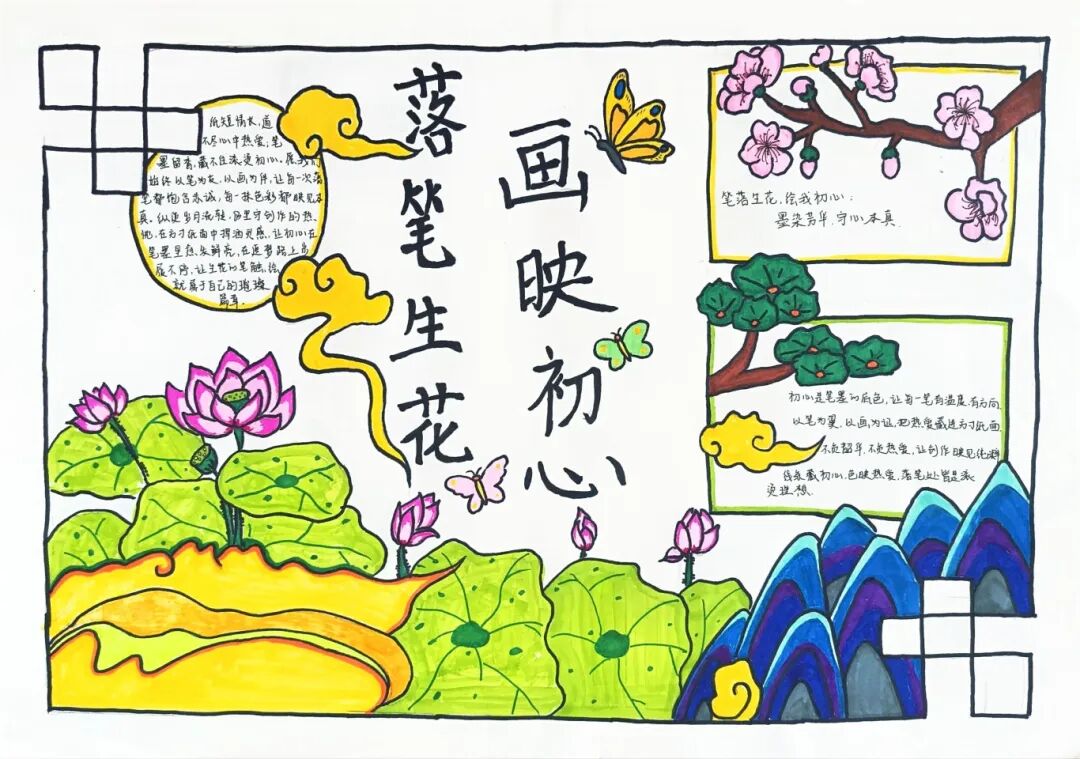 落笔生花
画映初心
纸短情长,道
不尽心中热爱;笔
墨留香,藏不住滚烫初心。愿我们
始终以笔为友,以画为伴,让每一次落
笔都饱含赤诚,每一抹色彩都映见本
真。纵使岁月流转,仍坚守创作的热
忱,在方寸纸面中挥洒灵感,让初心在
笔墨里熠熠鲜亮,在逐梦路上步
履不停,让生花的笔触,绘
就属于自己的璀璨
篇章。
笔落生花,绘我初心;
墨染芳华,守心本真。
初心是笔墨的底色,让每一笔有温度、有方向
以笔为翼,以画为证,把热爱藏进方寸纸面
不负韶华,不负热爱,让创作映见纯粹
线条藏初心,色映热爱,落笔处皆是滚
烫理想